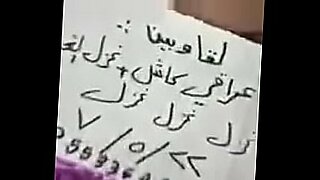 لفاوبينا :
عراقي كاش + نزل
نزل نزل نزل
٧/٥/٢٢